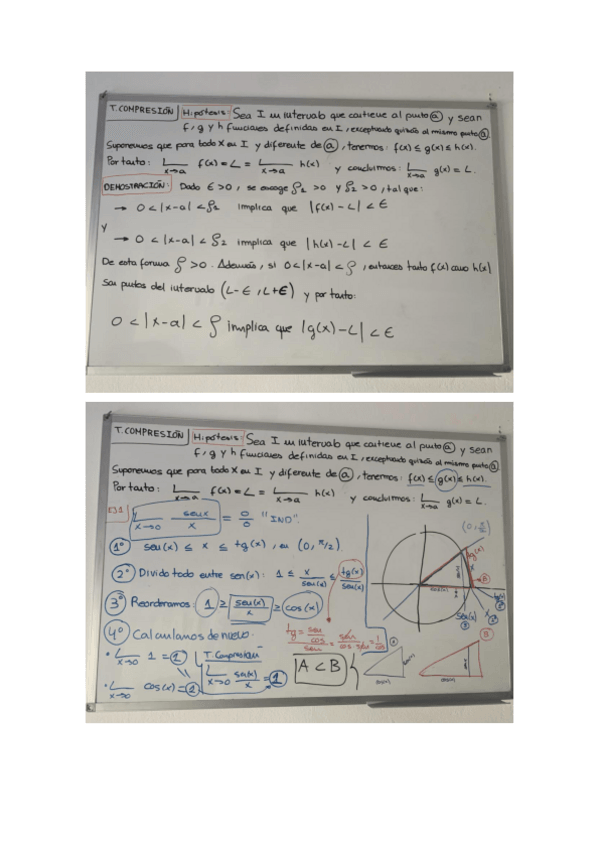 T. COMPRESIÓN Hipótesis: Sea I un intervalo que contiene al punto a y sean
f, g y h funciones definidas en I, exceptuando quizás al mismo punto a.
Suponemos que para todo x en I y diferente de a, tenemos: f(x) ≤ g(x) ≤ h(x).
Por tanto: L x→a f(x) = L = L x→a h(x) y concluimos: L x→a g(x) = L.
DEMOSTRACIÓN: Dado ε > 0, se escoge ρ1 > 0 y ρ2 > 0, tal que:
→ 0 < |x-a| < ρ2 implica que |f(x) - L| < ε
y
→ 0 < |x-a| < ρ2 implica que |h(x) - L| < ε
De esta forma ρ > 0. Además, si 0 < |x-a| < ρ, entonces tanto f(x) como h(x)
Son puntos del intervalo (L-ε, L+ε) y por tanto:
0 < |x-a| < ρ implica que |g(x) - L| < ε
T. COMPRESIÓN Hipótesis: Sea I un intervalo que contiene al punto a y sean
f, g y h funciones definidas en I, exceptuando quizás al mismo punto a.
Suponemos que para todo x en I y diferente de a, tenemos: f(x) ≤ g(x) ≤ h(x).
Por tanto: L x→a f(x) = L = L x→a h(x) y concluimos: L x→a g(x) = L.
EJ.1 L x→0 sen x / x = 0/0 "IND".
1º sen(x) ≤ x ≤ tg(x), en (0, π/2)
2º Divido todo entre sen(x): 1 ≤ x/sen(x) ≤ tg(x)/sen(x)
3º Reordenamos: 1 ≥ sen(x)/x ≥ cos(x)
4º Calculamos de nuevo.
tg = sen/cos / sen = sen/cos·sen = 1/cos
• L x→0 1 = 1
T. Compresión
L x→0 sen(x)/x = 1
• L x→0 cos(x) = 1
A < B
(0, π/2)
tg(x)
A
cos(x)
sen(x)
x
tg(x)
A
sen(x)
cos(x)
B